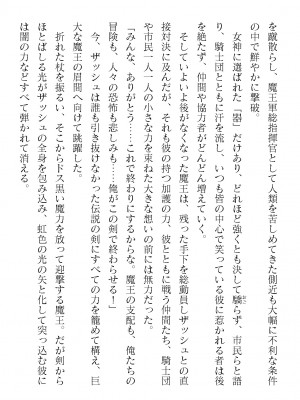 を蹴散らし、魔王軍総指揮官として人類を苦しめてきた側近も大幅に不利な条件
の中で鮮やかに撃破。
女神に選ばれた「器」だけあり、どれほど強くとも決して驕らず、市民らと語
り、騎士団とともに汗を流し、いつも皆の中心で笑っている彼に惹かれる者は後
を絶たず、仲間や協力者がどんどん増えていく。
そしていよいよ後がなくなった魔王は、残った手下を総動員しザッシュとの直
接対決に及んだが、それも彼の持つ加護の力、彼とともに戦う仲間たち、騎士団
や市民一人一人の小さな力を束ねた大きな想いの前には無力だった。
「みんな、ありがとう……これで終わりにするからな。魔王の支配も、俺たちの
冒険も、人々の恐怖も悲しみも……俺がこの剣で終わらせる！」
今、ザッシュは誰も引き抜けなかった伝説の剣にすべての力を籠めて構え、巨
大な魔王の眉間に向けて跳躍した。
折れた杖を振るい、そこからドス黒い魔力を放って迎撃する魔王。だが剣から
ほとばしる光がザッシュの全身を包み込み、虹色の光の矢と化して突っ込む彼に
は闇の力などすべて弾かれて消える。